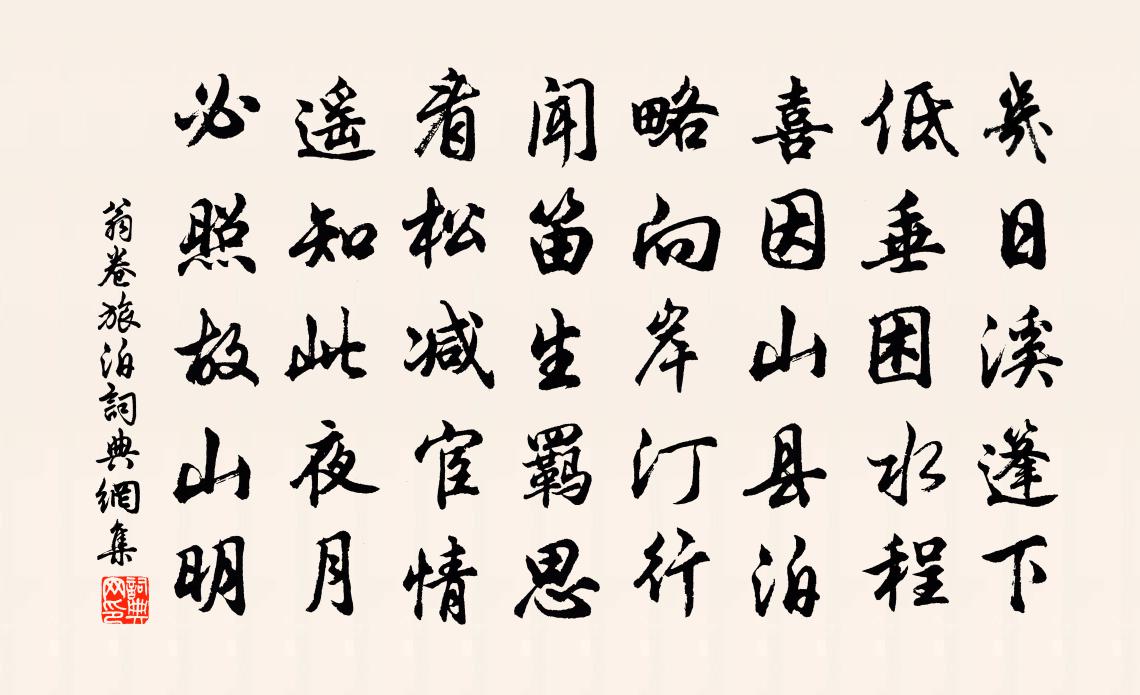 幾日溪蓬下
低垂困水程
喜因山县泊
略向岸汀行
闻笛生羁思
看松减宦情
遥知此夜月
必照故山明
翁卷旅泊詞典網集
詞典網印